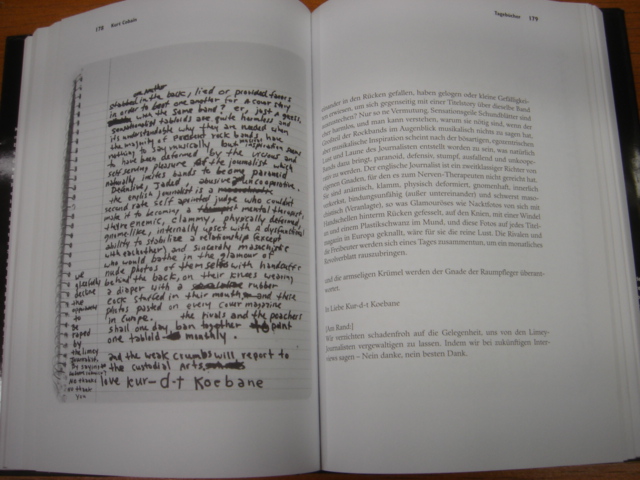 178 Kurt Cobain
one another
stabbed in the back, lied or provided favors
in order to beat one another for a cover story
with the same band? er, just a guess.
sensationalist tabloids are quite harmless and
it's understandable why they are needed when
the majority of rock bands have
nothing to say musically, but inspiration seems
to have been deformed by the vicious and
self serving pleasure of the journalist which
naturally incites bands to become paranoid
Defensive, Jaded abusive & uncooperative.
the english journalist is a
second rate self appointed judge who couldn't
make it to becoming a mental therapist,
there enemic, clammy, physically deformed
gnomelike, internally upset with A dysfunctional
ability to stabilize a relationship (except
with eachother) and sincerely masochistic
who would bathe in the glamour of
nude photos of themselves with handcuffs
behind the back, on their knees wearing
a diaper with a rubber
cock stuffed in their mouth and these
photos pasted on every cover magazine
in Europe. the rivals and the poachers
shall one day ban together & print
one tabloid monthly.
and the weak crumbs will report to
the custodial Arts.
love kur-d-t Koebane
we
gleefully
decline
the
opportunity
to
be
raped
by
the limey
journalist,
By saying
No thanks
no thank
you
Tagebücher 179
einander in den Rücken gefallen, haben gelogen oder kleine Gefälligkei-
ten erwiesen, um sich gegenseitig mit einer Titelstory über dieselbe Band
Nur so ne Vermutung. Sensationsgeile Schundblätter sind
harmlos, und man kann verstehen, warum sie nötig sind, wenn der
Großteil der Rockbands im Augenblick musikalisch nichts zu sagen hat,
musikalische Inspiration scheint nach der bösartigen, egozentrischen
Lust und Laune des Journalisten entstellt worden zu sein, was natürlich
Bands dazu bringt, paranoid, defensiv, stumpf, ausfallend und unkoope-
rativ zu werden. Der englische Journalist ist ein zweitklassiger Richter von
eigenen Gnaden, für den es zum Nerven-Therapeuten nicht gereicht hat.
anämisch, klamm, physisch deformiert, gnomenhaft, innerlich
bindungsunfähig (außer untereinander) und schwere maso-
chistisch (Veranlagte), so was Glamouröses wie Nacktfotos von sich mit
Handschellen hinterm Rücken gefesselt, auf den Knien, mit einer Windel
und einem Plastikschwanz im Mund, und diese Fotos auf jedes Titel-
magazin in Europa geklatscht, wäre für sie die reine Lust. Die Rivalen und
die Freibeuter werden sich eines Tages zusammentun, um ein monatliches
Boulevardblatt rauszubringen.
und die armseligen Krümel werden der Gnade der Raumpfleger überant-
wortet.
in Liebe Kur-d-t Koebane
[Am Rand:]
Wir verzichten schadenfroh auf die Gelegenheit, uns von den Limey-
Journalisten vergewaltigen zu lassen. Indem wir bei zukünftigen Inter-
views sagen – Nein danke, nein besten Dank.